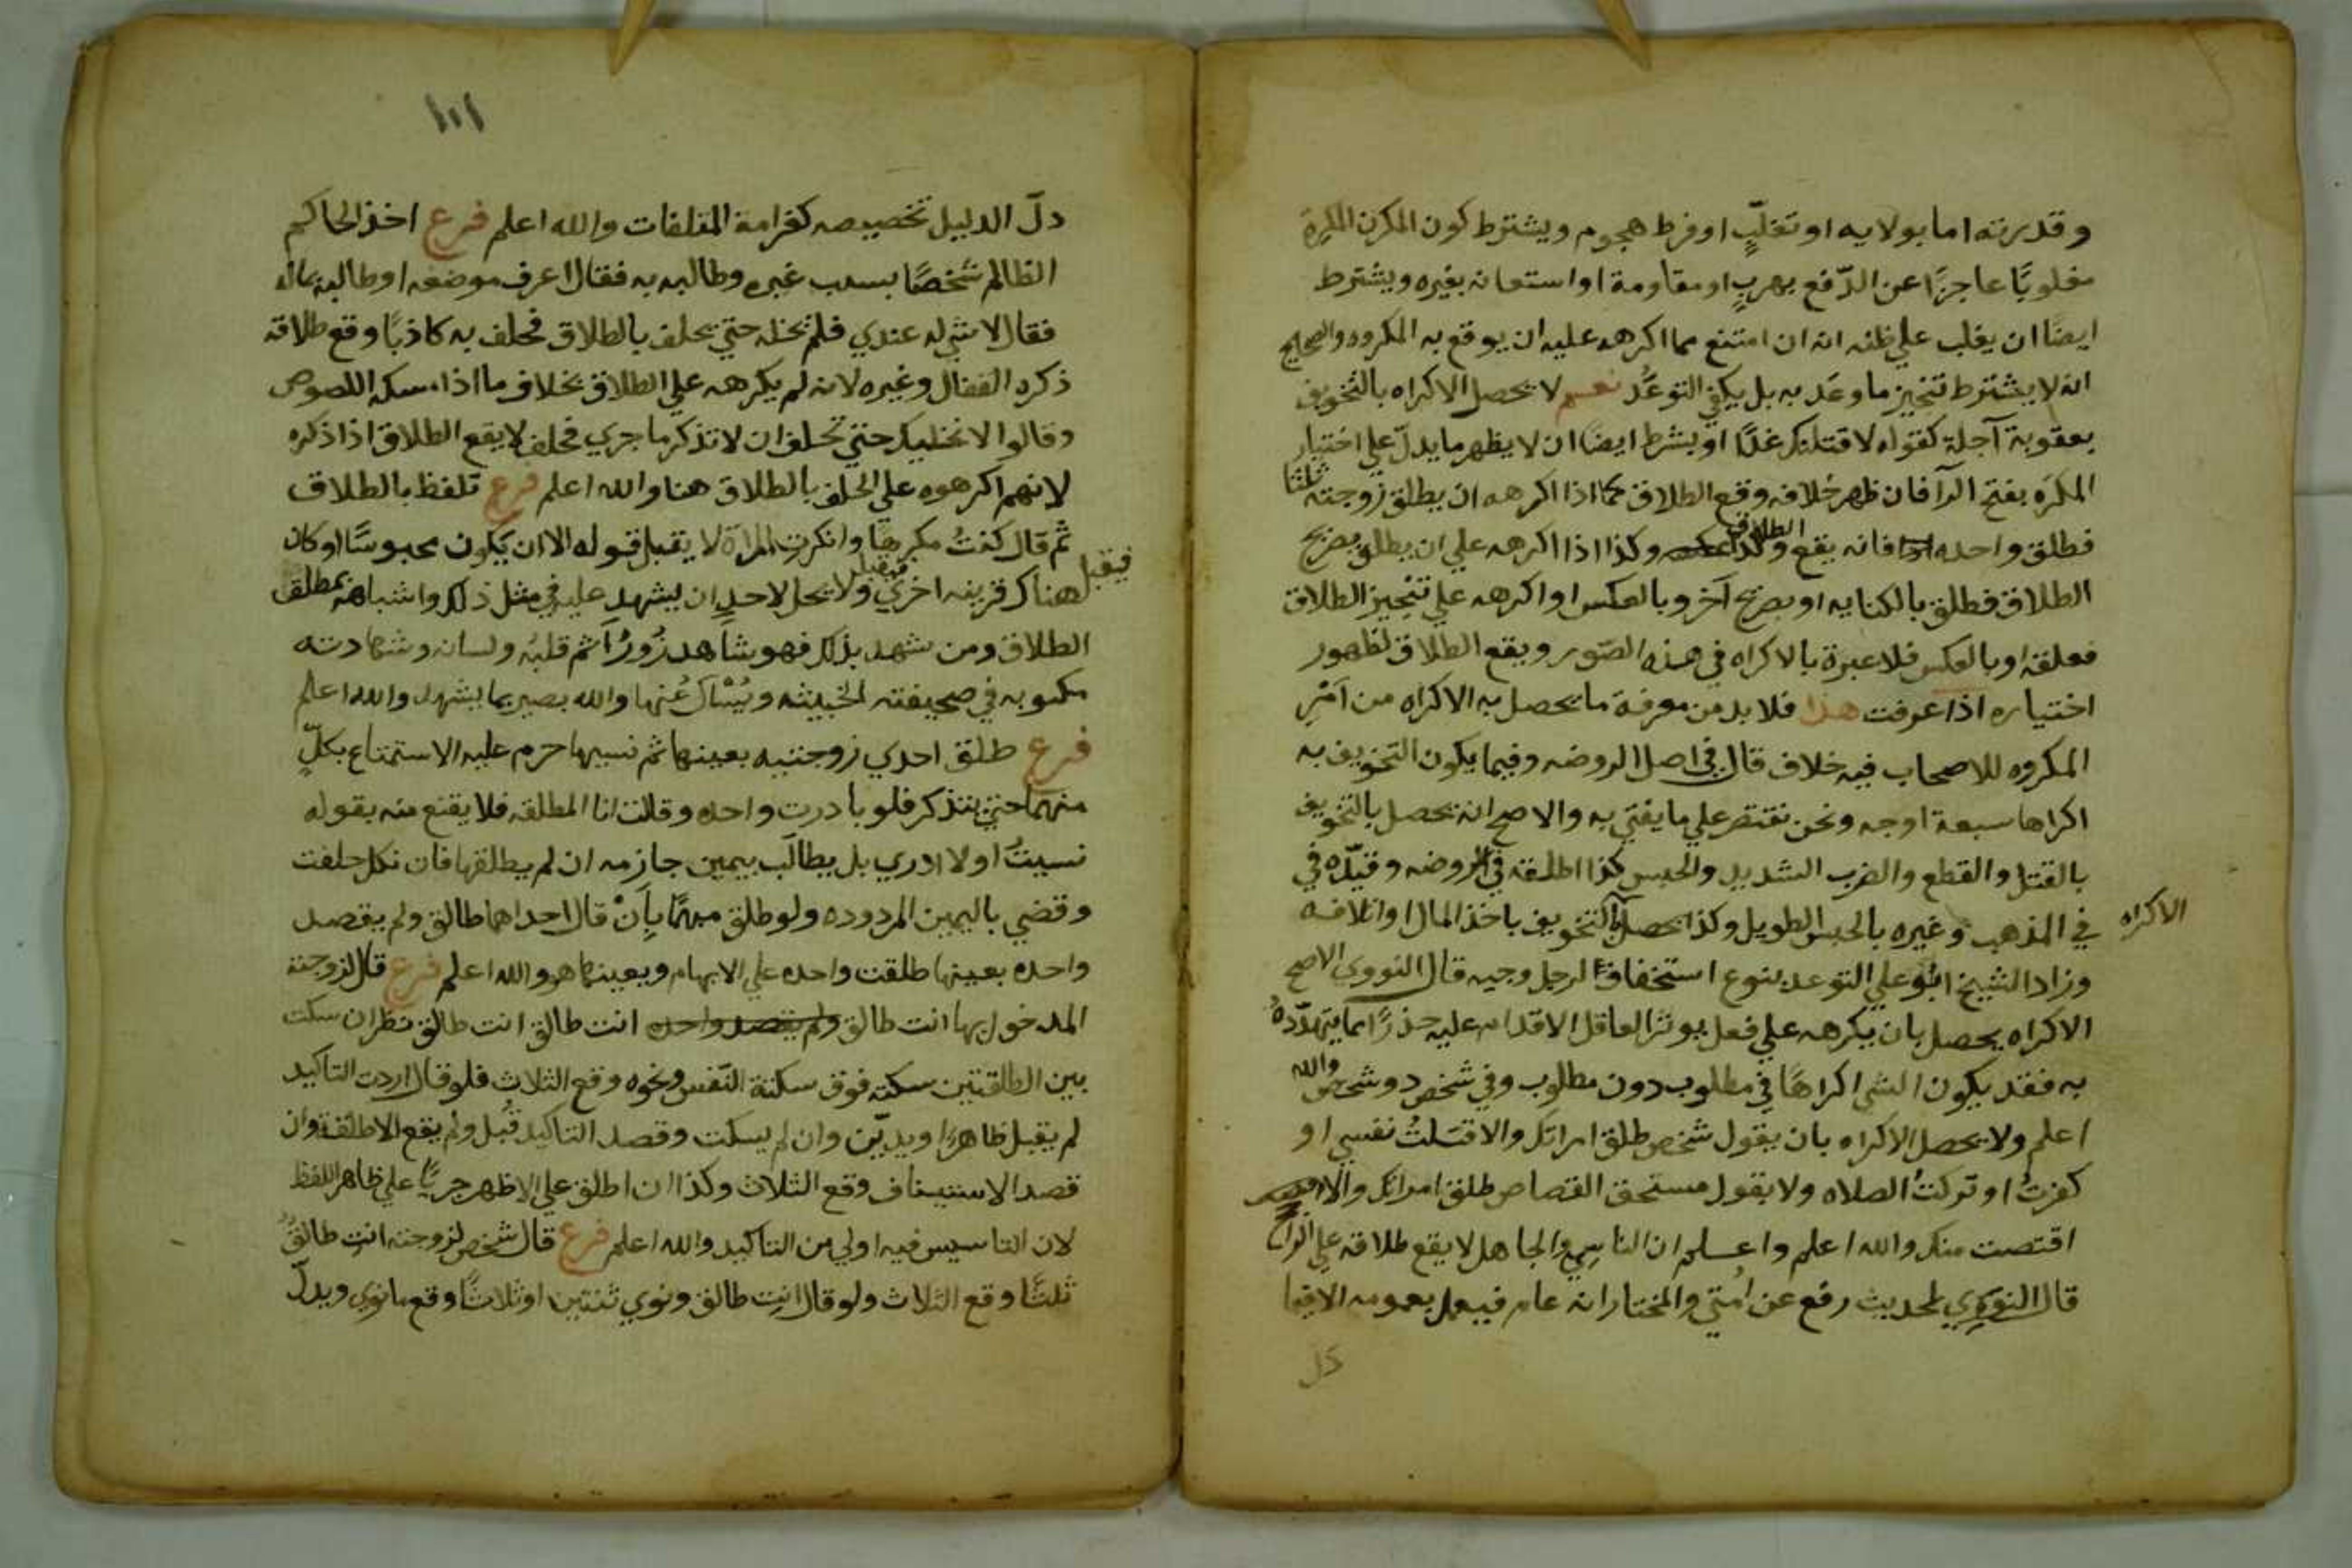 وقدرته اما بولايه او تغلّبٍ او فرط هجوم ويشترط كون المكره المكرَه
مغلوبًا عاجزًا عن الدّفع بهربٍ او مقاومة او استعانه بغيره ويشترط
ايضًا ان يغلب علي ظنه انه ان امتنع مما اكرهه عليه ان يوقع به المكروه والصحيح
انه لا يشترط تنجيز ما وعَد به بل يكفي التوعُّد نعم لا يحصل الاكراه بالتخويف
بعقوبة آجلة كقوله لاقتلنك غدًا ويشرط ايضا ان لا يظهر ما يدلّ علي اختيار
المكرَه بفتح الرآ فان ظهر خلافه وقع الطلاق كما اذا اكرهه ان يطلق زوجته ثلثا
فطلق واحده فانه يقع الطلاق وكذا اذا اكرهه علي ان يطلق بصريح
الطلاق فطلق بالكنايه او بصريح آخر وبالعكس او اكرهه علي تنجيز الطلاق
فعلقه او بالعكس فلا عبرة بالاكراه في هذه الصّور ويقع الطلاق لظهور
اختياره اذا عرفت هذا فلا بد من معرفة ما يحصل به الاكراه من امْرِ
المكروه للاصحاب فيه خلاف قال في اصل الروضه وفيما يكون التخويف به
اكراها سبعة اوجه ونحن نقتصر علي ما يفتي به والاصح انه يحصل بالتخويف
بالقتل والقطع والضرب الشديد والحبس كذا اطلقه في الروضه وقيّده في
في المذهب وغيره بالحبس الطويل وكذا يحصل بالتخويف باخذ المال او اتلافه
الاكراه
وزاد الشيخ ابو علي التوعد بنوع استخفاف لرجل وجيه قال النووي الاصح
الاكراه يحصل بان يكرهه علي فعل يوثر العاقل الاقدام عليه حذرًا مما يتهدّدهُ
به فقد يكون الشي اكراهًا في مطلوب دون مطلوب وفي شخص دو شخص والله
اعلم ولا يحصل الاكراه بان يقول شخص طلق امراتك والا قتلتُ نفسي او
كفرتُ او تركتُ الصلاه ولا يقول مستحق القصاص طلق امراتك والا
اقتصت منك والله اعلم واعلم ان الناسي والجاهل لا يقع طلاقه علي الراجح
قال النووي لحديث رفع عن امتي والمختار انه عام فيعمل بعمومه الا فيما
دل
١٠١
دلّ الدليل تخصيصه كغرامة المتلفات والله اعلم فرع اخذ الحاكم
الظالم شخصًا بسبب غيره وطالبه به فقال لا اعرف موضعه او طالبه بماله
فقال لا شي له عندي فلم يخله حتي يحلف بالطلاق فحلف به كاذبًا وقع طلاقه
ذكره القفال وغيره لانه لم يكرهه علي الطلاق بخلاف ما اذا مسكه اللصوص
وقالوا لا نخليك حتي تحلف ان لا تذكر ما جري فحلف لا يقع الطلاق اذا ذكره
لانهم اكرهوه علي الحلف بالطلاق هنا والله اعلم فرع تلفظ بالطلاق
ثم قال كنتُ مكرهًا وانكرت المراة لا يقبل قوله الا ان يكون محبوسًا او كان
فيقبل هناك قرينه اخري فيقبل ولا يحل لاحدٍ ان يشهد عليه في مثل ذلك واشباهه بمطلق
الطلاق ومن شهد بذلك فهو شاهد زُورٌ آثم قلبُه ولسانه وشهادته
مكتوبه في صحيفته الخبيثه ويُسْأل عُنها والله بصير بما يشهد والله اعلم
فرع طلق احدي زوجتيه بعينها ثم نسيها حرم عليه الاستمتاع بكلٍّ
منهما حتي يتذكر فلو بادرت واحده وقالت انا المطلقه فلا يقنع منه بقوله
نسيتُ او لا ادري بل يطالَب بيمين جازمه ان لم يطلقها فان نكل حلفت
وقضي باليمين المردوده ولو طلق مبهمًا بِاَنْ قال احداهما طالق ولم يقصد
واحده بعينها طلقت واحده علي الابهام ويعينها هو والله اعلم فرع قال لزوجته
المدخول بها انت طالق ولم يقصد واحده انت طالق انت طالق نظر ان سكت
بين الطلقتين سكتة فوق سكتة النّفس ونحوه وقع الثلاث فلو قال اردت التاكيد
لم يقبل ظاهرًا ويديّن وان لم يسكت وقصد التاكيد قُبل ولم يقع الا طلقة وان
قصد الاستيناف وقع الثلاث وكذا ان اطلق علي الاظهر جريًا علي ظاهر اللفظ
لان التاسيس فيه اولي من التاكيد والله اعلم فرع قال شخص لزوجته انتِ طالقٌ
ثلثًا وقع الثلاث ولو قال انتِ طالق ونوي ثنتين او ثلاثًا وقع ما نوي ويدلّ